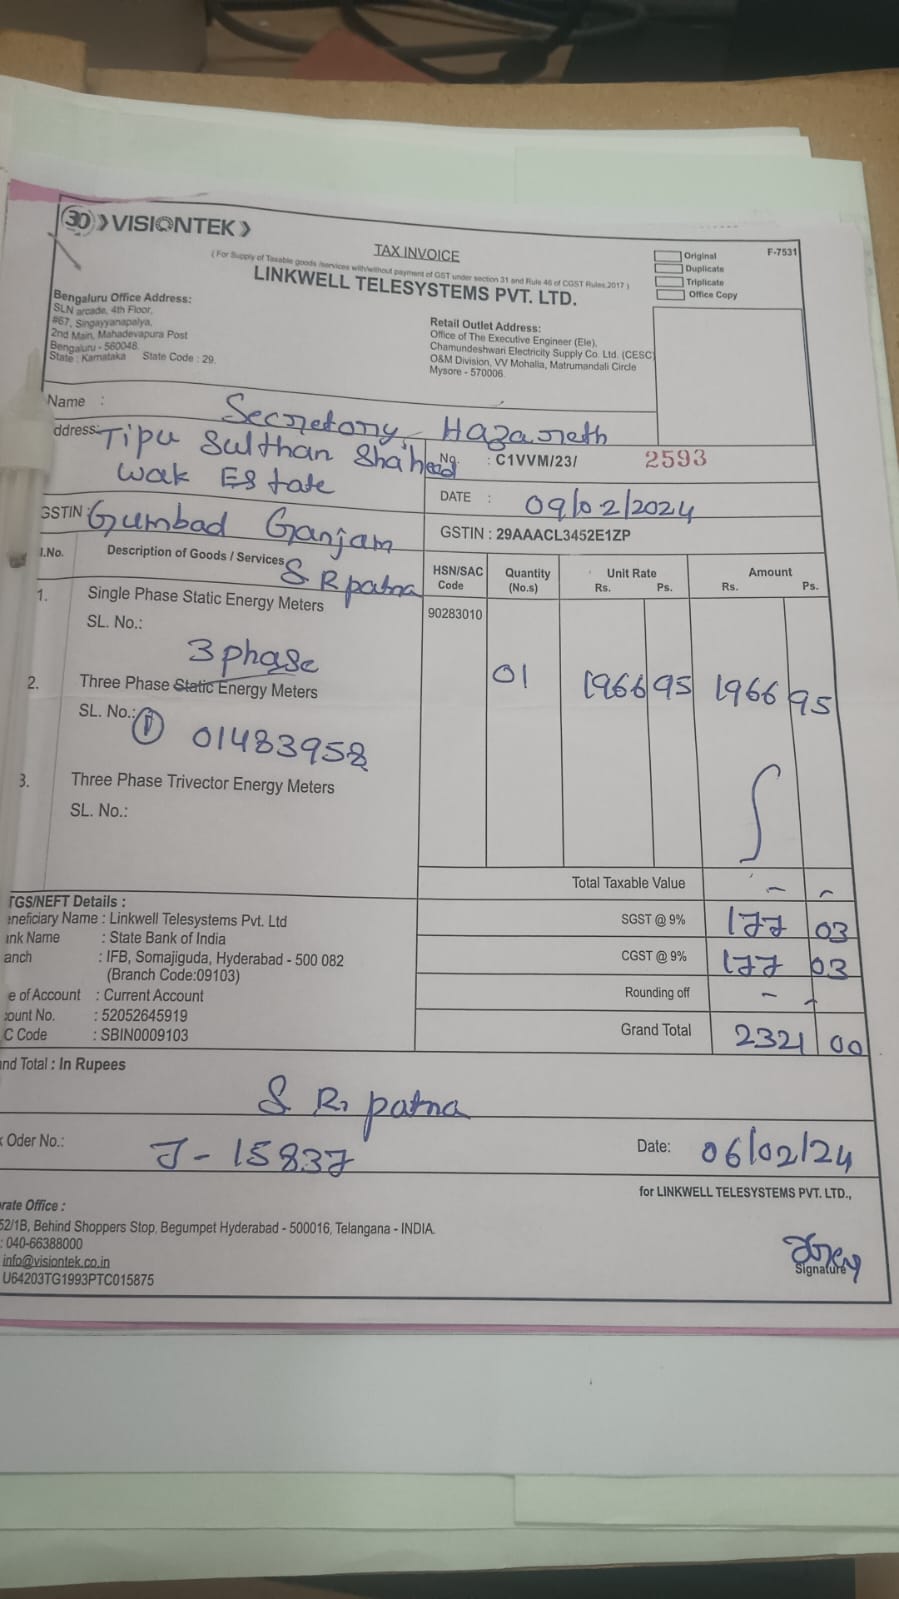 30 VISIONTEK
TAX INVOICE
( For Supply of Taxable goods /services with/without payment of GST under section 31 and Rule 46 of CGST Rules,2017 )
LINKWELL TELESYSTEMS PVT. LTD.
F-7531
Original
Duplicate
Triplicate
Office Copy
Bengaluru Office Address:
SLN arcade, 4th Floor,
#67, Singayyanapalya,
2nd Main, Mahadevapura Post
Bengaluru - 560048.
State : Karnataka State Code : 29.
Retail Outlet Address:
Office of The Executive Engineer (Ele),
Chamundeshwari Electricity Supply Co. Ltd. (CESC)
O&M Division, VV Mohalla, Matrumandali Circle
Mysore - 570006.
Name : Secretory Hazareth
ddress: Tipu Sulthan Shaheed
Wak Estate
No. : C1VVM/23/ 2593
DATE : 09/02/2024
GSTIN : Gumbad Ganjam
GSTIN : 29AAACL3452E1ZP
S R patna
l.No. Description of Goods / Services HSN/SAC Code Quantity (No.s) Unit Rate Rs. Ps. Amount Rs. Ps.
1. Single Phase Static Energy Meters 90283010
SL. No.:
3 phase
2. Three Phase Static Energy Meters 01 1966 95 1966 95
SL. No.: 1 01483958
3. Three Phase Trivector Energy Meters
SL. No.:
Total Taxable Value - -
SGST @ 9% 177 03
CGST @ 9% 177 03
Rounding off - -
Grand Total 2321 00
TGS/NEFT Details :
eneficiary Name : Linkwell Telesystems Pvt. Ltd
ank Name : State Bank of India
anch : IFB, Somajiguda, Hyderabad - 500 082
(Branch Code:09103)
e of Account : Current Account
count No. : 52052645919
C Code : SBIN0009103
nd Total : In Rupees
S. R. patna
k Oder No.: J - 15837
Date: 06/02/24
for LINKWELL TELESYSTEMS PVT. LTD.,
Signature
orate Office :
52/1B, Behind Shoppers Stop, Begumpet Hyderabad - 500016, Telangana - INDIA.
: 040-66388000
info@visiontek.co.in
U64203TG1993PTC015875